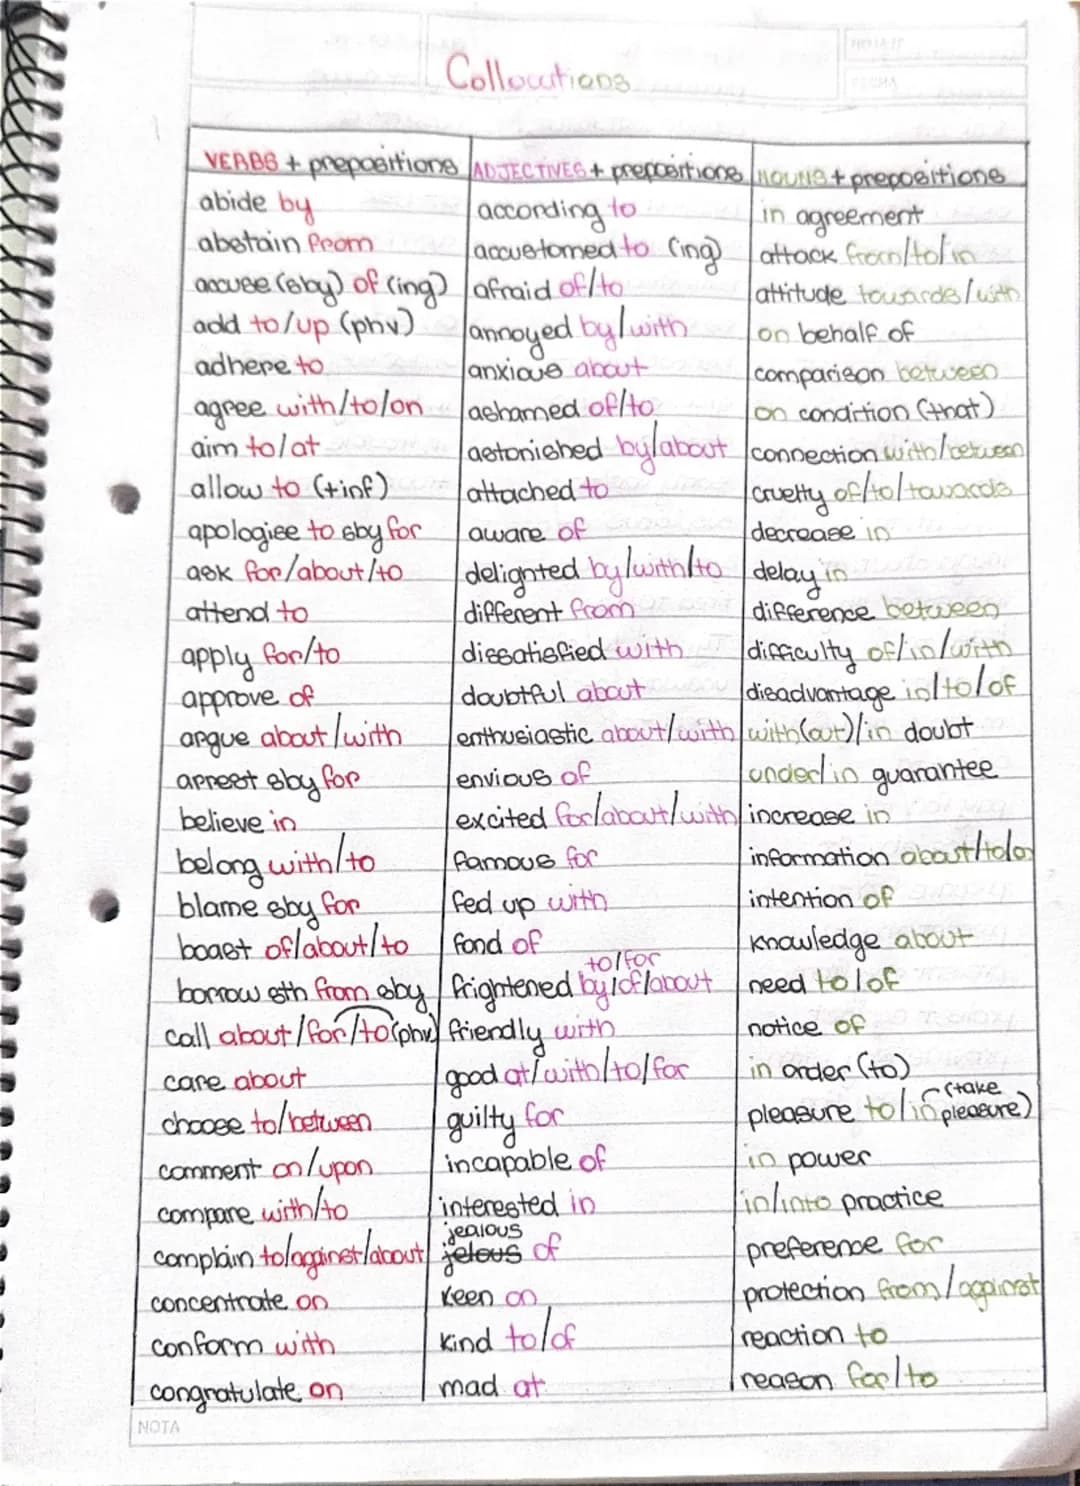 Collocations
VERBS + prepositions ADJECTIVES + prepositions NOUNS + prepositions
abide by according to in agreement
abstain from accustomed to (ing) attack from/to/in
accuse (sby) of (ing) afraid of/to attitude towards/with
add to/up (phv) annoyed by/with on behalf of
adhere to anxious about comparison between
agree with/to/on ashamed of/to on condition (that)
aim to/at astonished by/about connection with/between
allow to (+inf) attached to cruelty of/to/towards
apologise to sby for aware of decrease in
ask for/about/to delighted by/with/to delay in
attend to different from difference between
apply for/to dissatisfied with difficulty of/in/with
approve of doubtful about disadvantage in/to/of
argue about/with enthusiastic about/with with(out)/in doubt
arrest sby for envious of under/in guarantee
believe in excited for/about/with increase in
belong with/to famous for information about/to/on
blame sby for fed up with intention of
boast of/about/to fond of knowledge about
to/for
borrow sth from sby frightened by/of/about need to/of
call about/for/to(phv) friendly with notice of
care about good at/with/to/for in order (to)
choose to/between guilty for pleasure to/in (take pleasure)
comment on/upon incapable of in power
compare with/to interested in in/into practice
jealous
complain to/against/about jelous of preference for
concentrate on keen on protection from/against
conform with kind to/of reaction to
congratulate on mad at reason for/to
NOTA